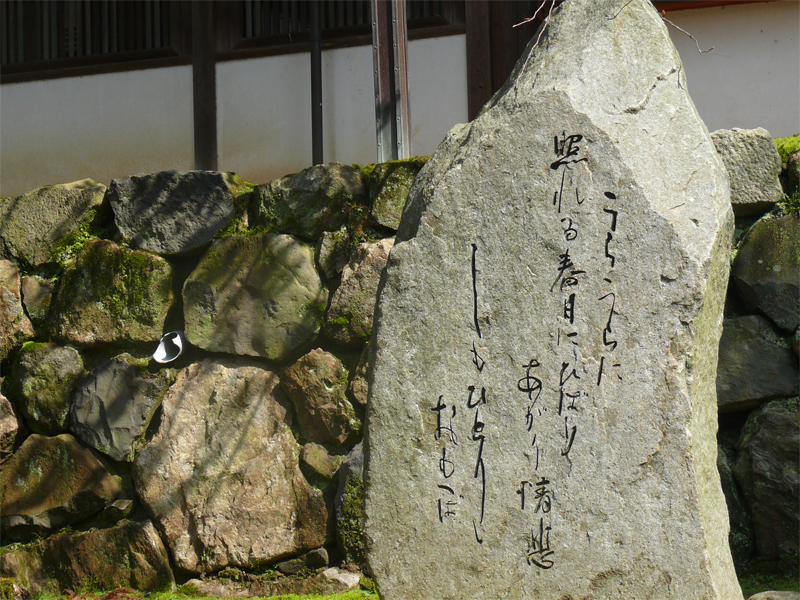 うらうらに
照れる春日にひばり
あがり情悲
しもひとりし
おもへば